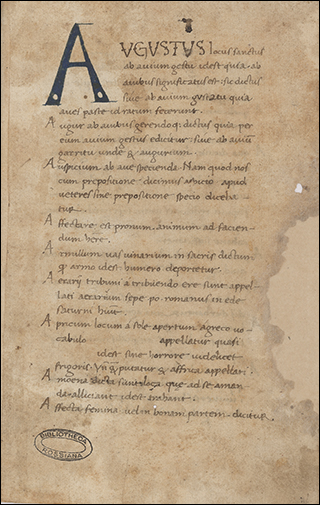 AUGUSTUS locus sanctus
ab avium gestu idest quia ab
avibus significatus est: sic dictus
sive ab avium gustatu quia
aves paste id ratum fecerunt.
Augur ab avibus gerendoq; dictus quia per
eum avium gestus edicitur: sive ab aviũ
garritu unde & augurium.
Auspicium ab ave specienda. Nam quod nos
cum prepositione dicimus aspicio apud
veteres sine prepositione specio diceba
tur.
Affectare est pronum animum ad facien
dum here.
Armillum vas vinarium in sacris dictum
armo idest humero deportetur.
Erarij tribuni a tribuendo ere sunt appel
lati aerarium sepe po. romanus in ede
saturni
Apricum locum a sole apertum a greco vo
cabulo appellatur quasi
idest sine horrore videlicet
frigoris. putatur & affrica appellari.
Amoena dicta sunt loca que ad se aman
da alliciant idest trahant.
Affecta femina vel in bonam partem dicitur.
BIBLIOTHECA
ROSSIANA